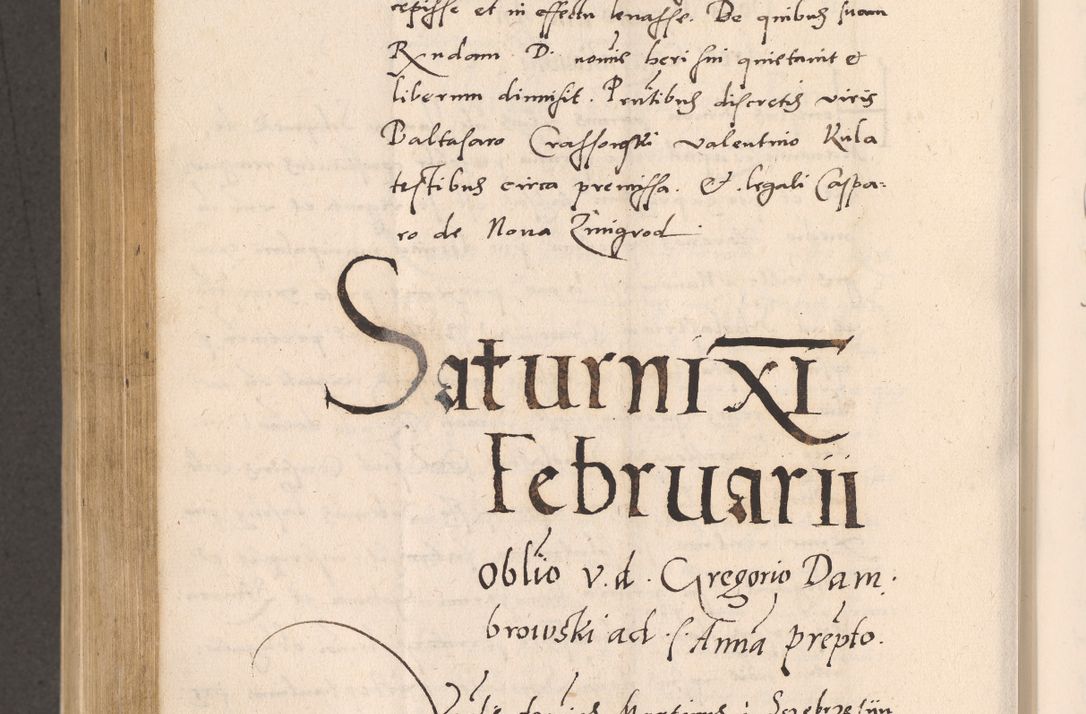 cepisse et in effectu tenasse. De quibus suam
Rndam D. nouis heri sui quietauit et
liberum dimisit. Pntibus discretis viris
Baltasaro Crassowski valentino Kula
testibus circa premissa. Et legali Caspa-
ro de Noua Zmigrod
Saturni XI
Februarii
Oblio v. d. Gregorio Dam.
browski ad S. Anna prepto.
Martinus i Sczebrzesiin